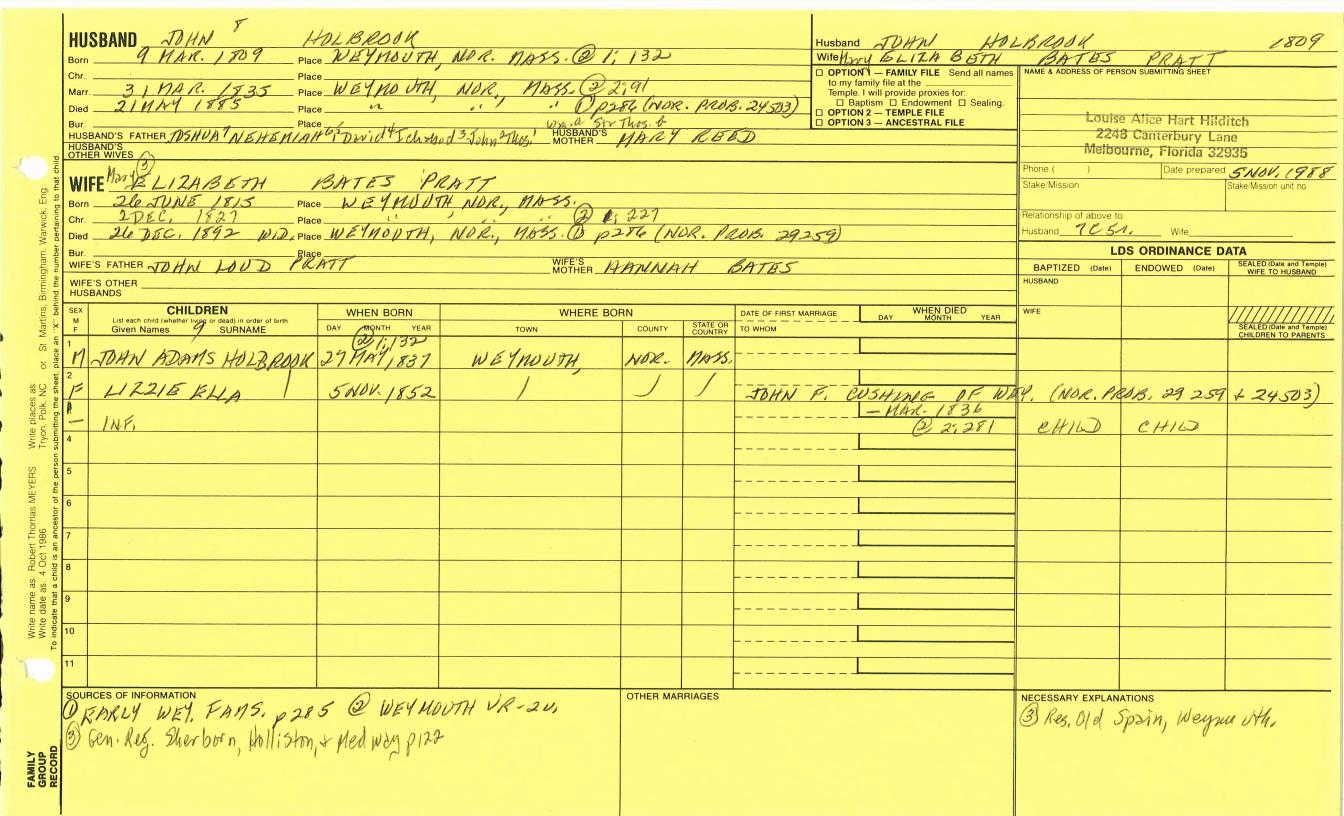 HUSBAND JOHN 8 HOLBROOK
Born 9 MAR. 1809 Place WEYMOUTH, NOR. MASS. ② 1; 132
Chr. Place
Marr. 31 MAR. 1835 Place WEYMOUTH, NOR, MASS. ② 2; 91
Died 21 MAY 1885 Place " " " " ① p286 (NOR. PROB. 24503)
Bur. Place
HUSBAND'S FATHER JOSHUA 7 NEHEMIAH 6 David 4 Ichabod 3 John 2 Thos. 1 HUSBAND'S MOTHER MARY REED
HUSBAND'S OTHER WIVES
WIFE Mary ③ ELIZABETH BATES PRATT
Born 26 JUNE 1815 Place WEYMOUTH NOR, MASS.
Chr. 2 DEC. 1827 Place " " " ② 1; 227
Died 26 DEC. 1892 WID. Place WEYMOUTH, NOR., MASS. ① p286 (NOR. PROB. 29259)
Bur. Place
WIFE'S FATHER JOHN LOUD PRATT WIFE'S MOTHER HANNAH BATES
WIFE'S OTHER HUSBANDS
Husband JOHN HOLBROOK 1809
Wife Mary ELIZABETH BATES PRATT
☐ OPTION 1 — FAMILY FILE Send all names
to my family file at the
Temple. I will provide proxies for:
☐ Baptism ☐ Endowment ☐ Sealing.
☐ OPTION 2 — TEMPLE FILE
☐ OPTION 3 — ANCESTRAL FILE
NAME & ADDRESS OF PERSON SUBMITTING SHEET
Louise Alice Hart Hilditch
2248 Canterbury Lane
Melbourne, Florida 32935
Phone ( ) Date prepared 5 NOV. 1988
Stake/Mission Stake/Mission unit no
Relationship of above to
Husband Wife
LDS ORDINANCE DATA
BAPTIZED (Date) ENDOWED (Date) SEALED (Date and Temple) WIFE TO HUSBAND
HUSBAND
WIFE
SEALED (Date and Temple) CHILDREN TO PARENTS
SEX M F CHILDREN WHEN BORN WHERE BORN DATE OF FIRST MARRIAGE WHEN DIED
List each child (whether living or dead) in order of birth
Given Names 9 SURNAME DAY MONTH YEAR TOWN COUNTY STATE OR COUNTRY TO WHOM DAY MONTH YEAR
② 1; 132
1 M JOHN ADAMS HOLBROOK 27 MAY, 1837 WEYMOUTH, NOR. MASS.
2 F LIZZIE ELLA 5 NOV. 1852 JOHN F. CUSHING OF WEY. (NOR. PROB. 29 259 + 24503)
— MAR. 1836
— INF. ② 2; 281 CHILD CHILD
4
5
6
7
8
9
10
11
SOURCES OF INFORMATION
① EARLY WEY. FAMS. p285 ② WEYMOUTH VR-2v.
③ Gen. Reg. Sherborn, Holliston, + Medway p122
OTHER MARRIAGES
NECESSARY EXPLANATIONS
③ Res. Old Spain, Weymouth.
FAMILY GROUP RECORD
Write name as: Robert Thomas MEYERS Write places as: Tryon, Polk, NC or St Martins, Birmingham, Warwick, Eng.
Write date as: 4 Oct 1986
To indicate that a child is an ancestor of the person submitting the sheet, place an "X" behind the number pertaining to that child